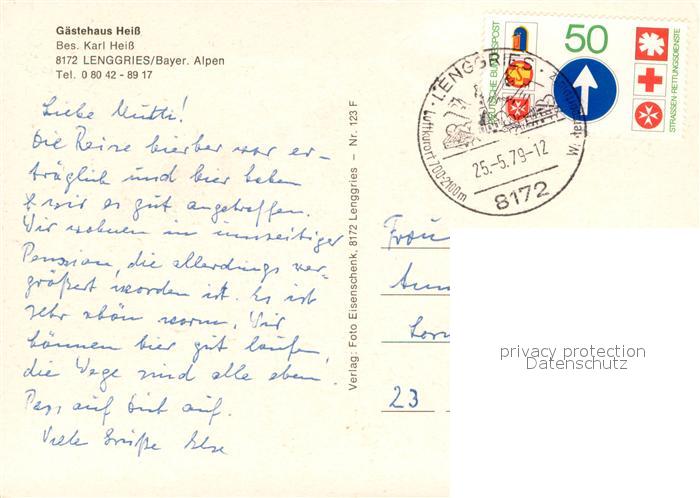 Gästehaus Heiß
Bes. Karl Heiß
8172 LENGGRIES/Bayer. Alpen
Tel. 0 80 42 - 89 17
Liebe Mutti!
Die Reise hierher war er-
träglich und hier haben
wir es gut angetroffen.
Wir wohnen in unserer
Pension, die allerdings ver-
größert worden ist. Es ist
sehr schön warm. Wir
können hier gut laufen,
die Wege sind alle eben.
Pass auf Dich auf.
Viele Grüße Else
Verlag: Foto Eisenschenk, 8172 Lenggries – Nr. 123 F
DEUTSCHE BUNDESPOST
50
STRASSEN-RETTUNGSDIENSTE
· LENGGRIES ·
Luftkurort 700-2100m
25.-5.79-12
8172
Frau
23
privacy protection
Datenschutz